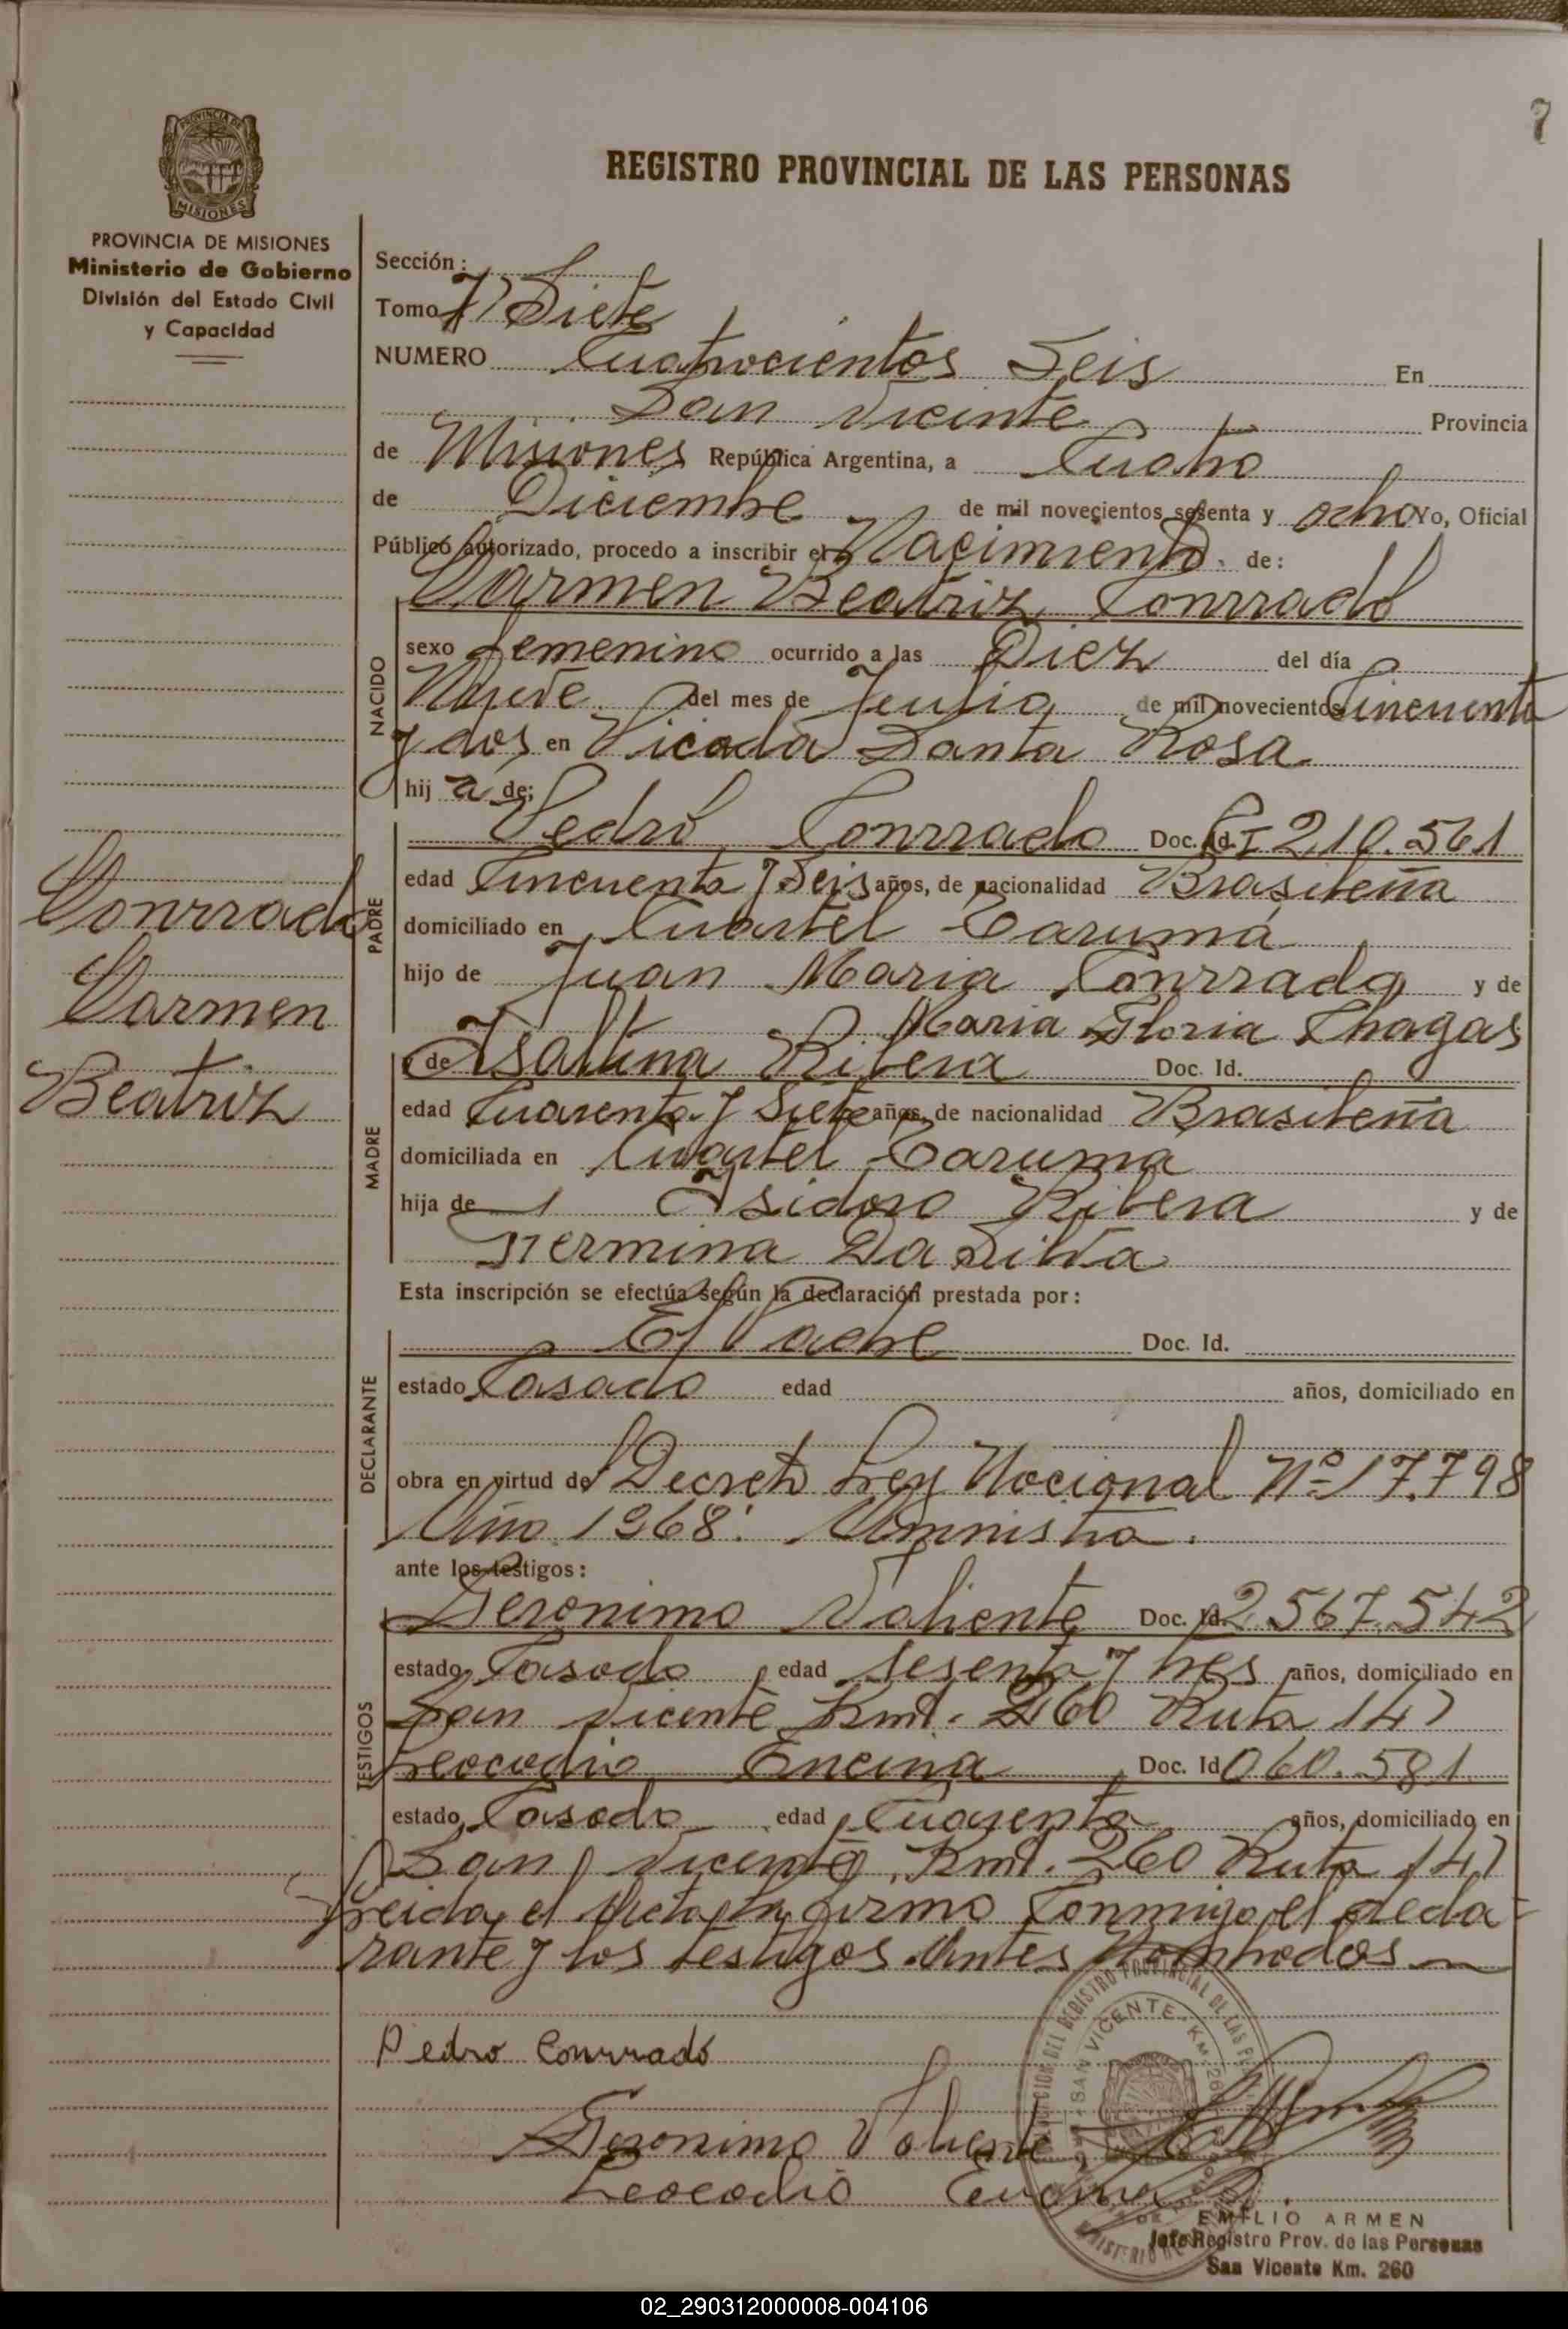 PROVINCIA DE MISIONES
PROVINCIA DE MISIONES
Ministerio de Gobierno
División del Estado Civil
y Capacidad
REGISTRO PROVINCIAL DE LAS PERSONAS
Sección:
Tomo Siete
NUMERO Cuatrocientos Seis En
San Vicente Provincia
de Misiones República Argentina, a Cuatro
de Diciembre de mil novecientos sesenta y ocho Yo, Oficial
Público autorizado, procedo a inscribir el Nacimiento de:
Carmen Beatriz Conrrado
NACIDO
sexo femenino ocurrido a las Diez del día
Nueve del mes de Junio de mil novecientos Cincuenta
y dos en Picada Santa Rosa
hij a de:
PADRE
Pedro Conrrado Doc. Id. CI 210.561
edad Cincuenta y Seis años, de nacionalidad Brasileña
domiciliado en Cuartel Tarumá
hijo de Juan Maria Conrrado y de
Maria Gloria Chagas
MADRE
de Isaltina Ribera Doc. Id.
edad Cuarenta y Siete años, de nacionalidad Brasileña
domiciliada en Cuartel Taruma
hija de Isidoro Ribera y de
Hermina Da Silva
Conrrado
Carmen
Beatriz
Esta inscripción se efectúa según la declaración prestada por:
DECLARANTE
El Padre Doc. Id.
estado Casado edad años, domiciliado en
obra en virtud del Decreto Ley Nacional Nº 17.798
Año 1968. Amnistia.
ante los testigos:
TESTIGOS
Geronimo Valiente Doc. Id. 2.567.542
estado Casado edad Sesenta y tres años, domiciliado en
San Vicente Kmt. 260 Ruta 14
Leocadio Encina Doc. Id. 060.581
estado Casado edad Cuarenta años, domiciliado en
San Vicente Kmt. 260 Ruta 14
Leida el Acta, la firma Conmigo, el decla-
rante y los testigos Antes Nombrados
Pedro Conrrado
Geronimo Valiente
Leocadio Encina
REGISTRO PROVINCIAL DE LAS
SAN VICENTE - KM. 260
EMILIO ARMEN
Jefe Registro Prov. de las Personas
San Vicente Km. 260
02_290312000008-004106